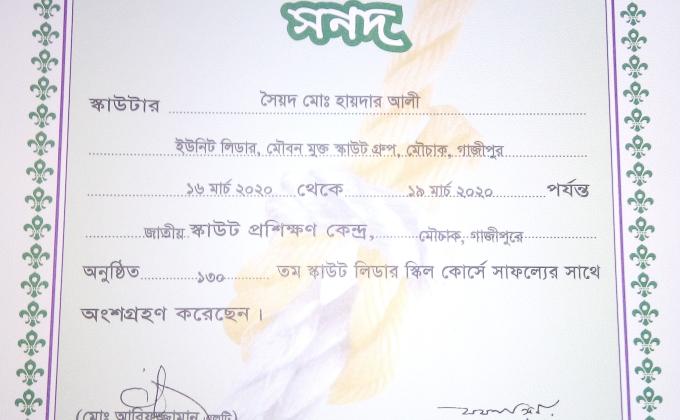 সনদ
স্কাউটার সৈয়দ মোঃ হায়দার আলী
ইউনিট লিডার, মৌবন মুক্ত স্কাউট গ্রুপ, মৌচাক, গাজীপুর
১৬ মার্চ ২০২০ থেকে ১৯ মার্চ ২০২০ পর্যন্ত
জাতীয় স্কাউট প্রশিক্ষণ কেন্দ্র, মৌচাক, গাজীপুরে
অনুষ্ঠিত ১৩০ তম স্কাউট লিডার স্কিল কোর্সে সাফল্যের সাথে
অংশগ্রহণ করেছেন।
(মোঃ আরিফুজ্জামান